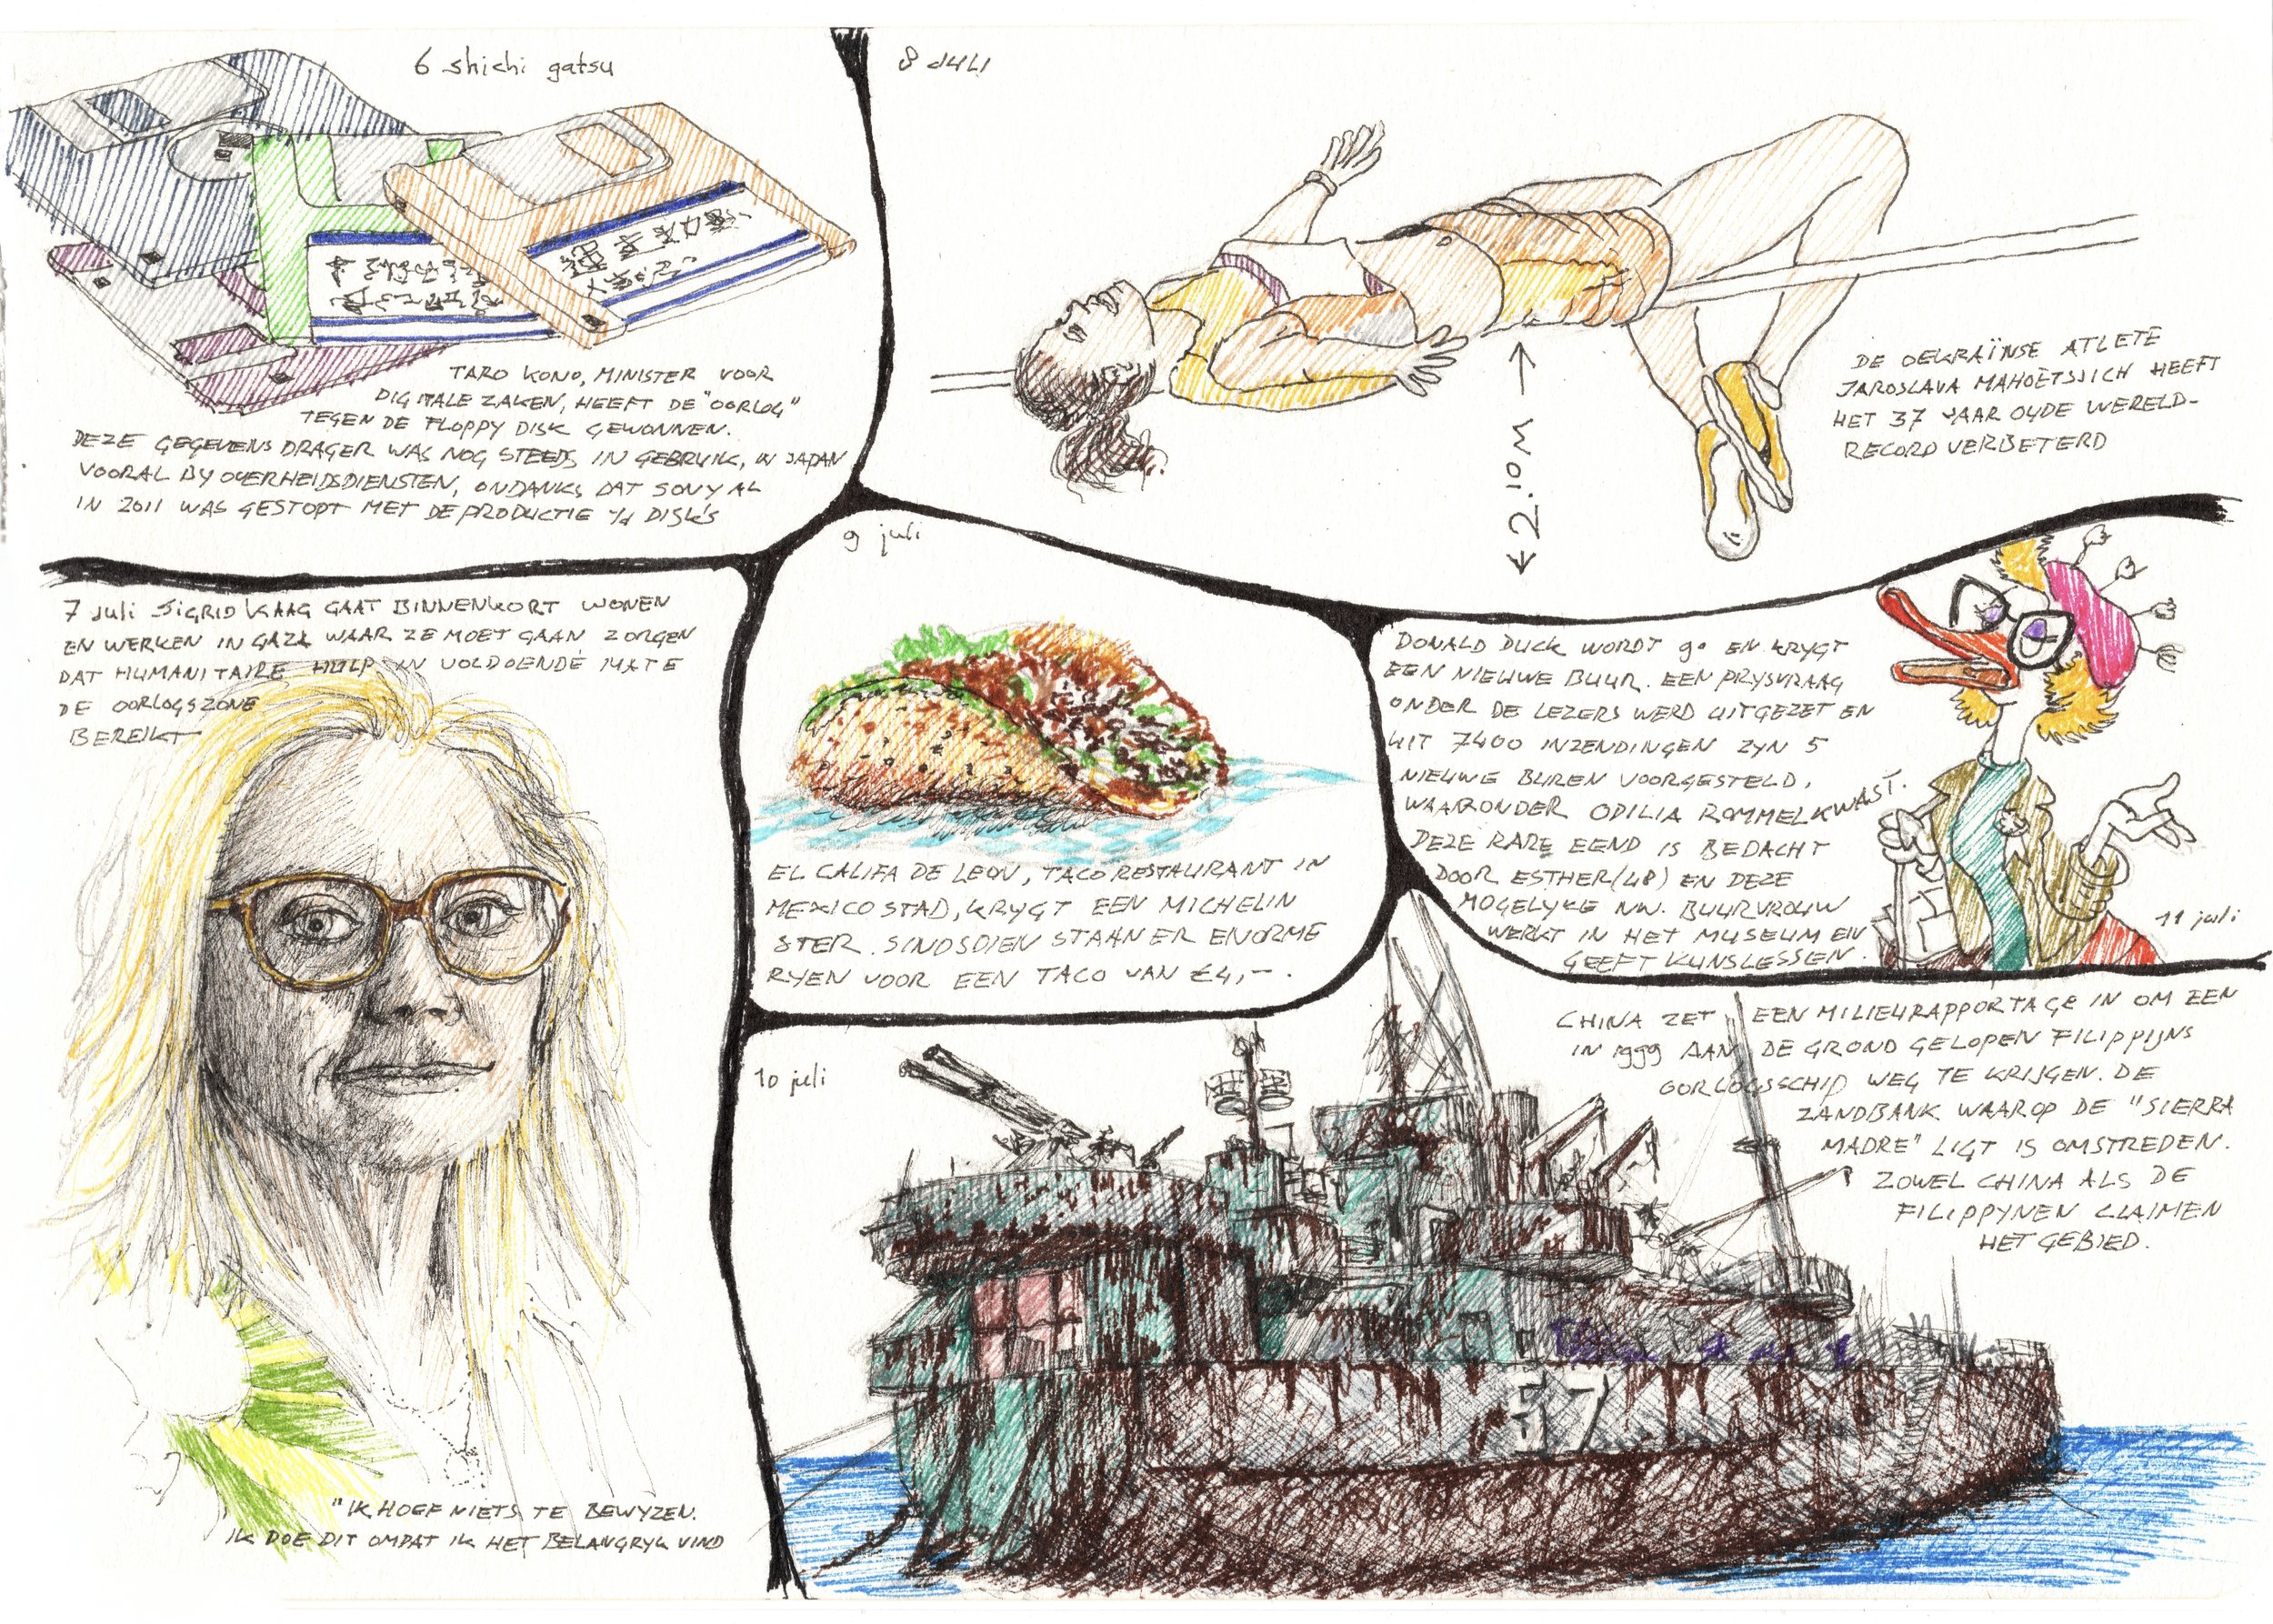 6 shichi gatsu
TARO KONO, MINISTER VOOR
DIGITALE ZAKEN, HEEFT DE "OORLOG"
TEGEN DE FLOPPY DISK GEWONNEN.
DEZE GEGEVENS DRAGER WAS NOG STEEDS IN GEBRUIK, IN JAPAN
VOORAL BY OVERHEIDSDIENSTEN, ONDANKS DAT SONY AL
IN 2011 WAS GESTOPT MET DE PRODUCTIE DISK'S
8 JULI
2.10 M
DE OEKRAÏNSE ATLETE
JAROSLAVA MAHOETSJICH HEEFT
HET 37 JAAR OUDE WERELD-
RECORD VERBETERD
7 juli SIGRID KAAG GAAT BINNENKORT WONEN
EN WERKEN IN GAZA WAAR ZE MOET GAAN ZORGEN
DAT HUMANITAIRE HULP IN VOLDOENDE MATE
DE OORLOGSZONE
BEREIKT
"IK HOEF NIETS TE BEWYZEN.
IK DOE DIT OMDAT IK HET BELANGRYK VIND
9 juli
EL CALIFA DE LEON, TACORESTAURANT IN
MEXICO STAD, KRYGT EEN MICHELIN
STER. SINDSDIEN STAAN ER ENORME
RYEN VOOR EEN TACO VAN €4,-.
DONALD DUCK WORDT 90 EN KRYGT
EEN NIEUWE BUUR. EEN PRYSVRAAG
ONDER DE LEZERS WERD UITGEZET EN
UIT 7400 INZENDINGEN ZYN 5
NIEUWE BUREN VOORGESTELD,
WAARONDER ODILIA ROMMELKWAST.
DEZE RARE EEND IS BEDACHT
DOOR ESTHER (48) EN DEZE
MOGELYKE NW. BUURVROUW
WERKT IN HET MUSEUM EN
GEEFT KUNSLESSEN.
11 juli
10 juli
CHINA ZET EEN MILIEURAPPORTAGE IN OM EEN
IN 1999 AAN DE GROND GELOPEN FILIPPIJNS
OORLOGSSCHIP WEG TE KRIJGEN. DE
ZANDBANK WAAROP DE "SIERRA
MADRE" LIGT IS OMSTREDEN.
ZOWEL CHINA ALS DE
FILIPPYNEN CLAIMEN
HET GEBIED.
57